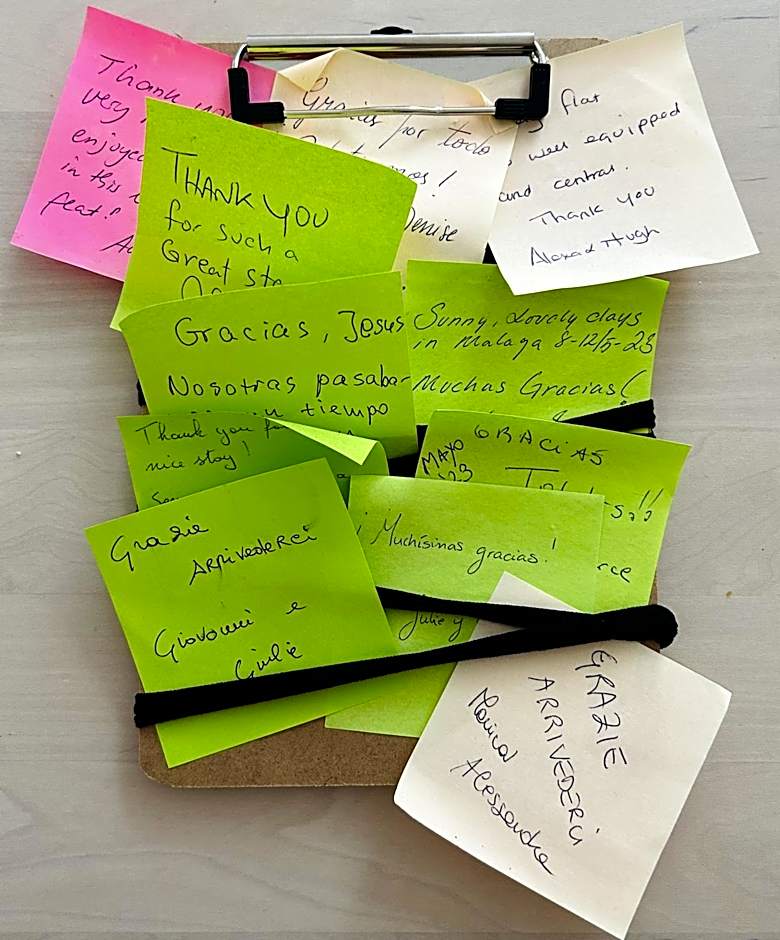 Thank you
very
enjoyed
in this
flat!
Gracias por todo
Denise
flat
well equipped
and central.
Thank you
Alexa & Hugh
THANK YOU
for such a
Great
Gracias, Jesus
Nosotras
tiempo
Sunny, Lovely days
in Malaga 8-12/5-23
Muchas Gracias!
Thank you
nice stay!
GRACIAS
MAYO
'23
Grazie
ARRIVEDERCI
Giovanni e
Giulie
¡Muchísimas gracias!
Julie y
GRAZIE
ARRIVEDERCI
Monica
Alessandra